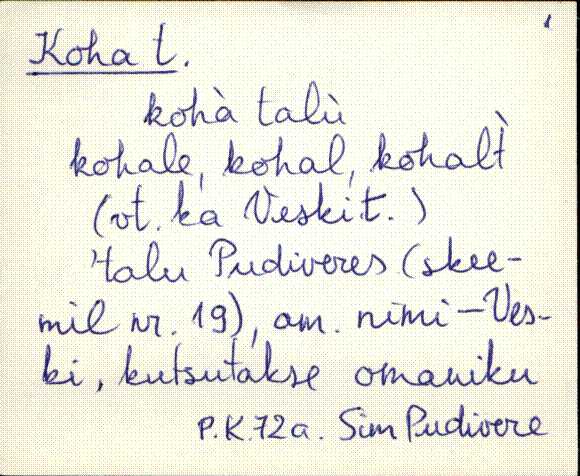 Koha t.
kohà talù
kohale, kohal, kohalt̀
(vt. ka Veski t.)
'talu Pudiveres (skee-
mil nr. 19), am. nimi – Ves-
ki, kutsutakse omaniku
P.K. 72a. Sim Pudivere